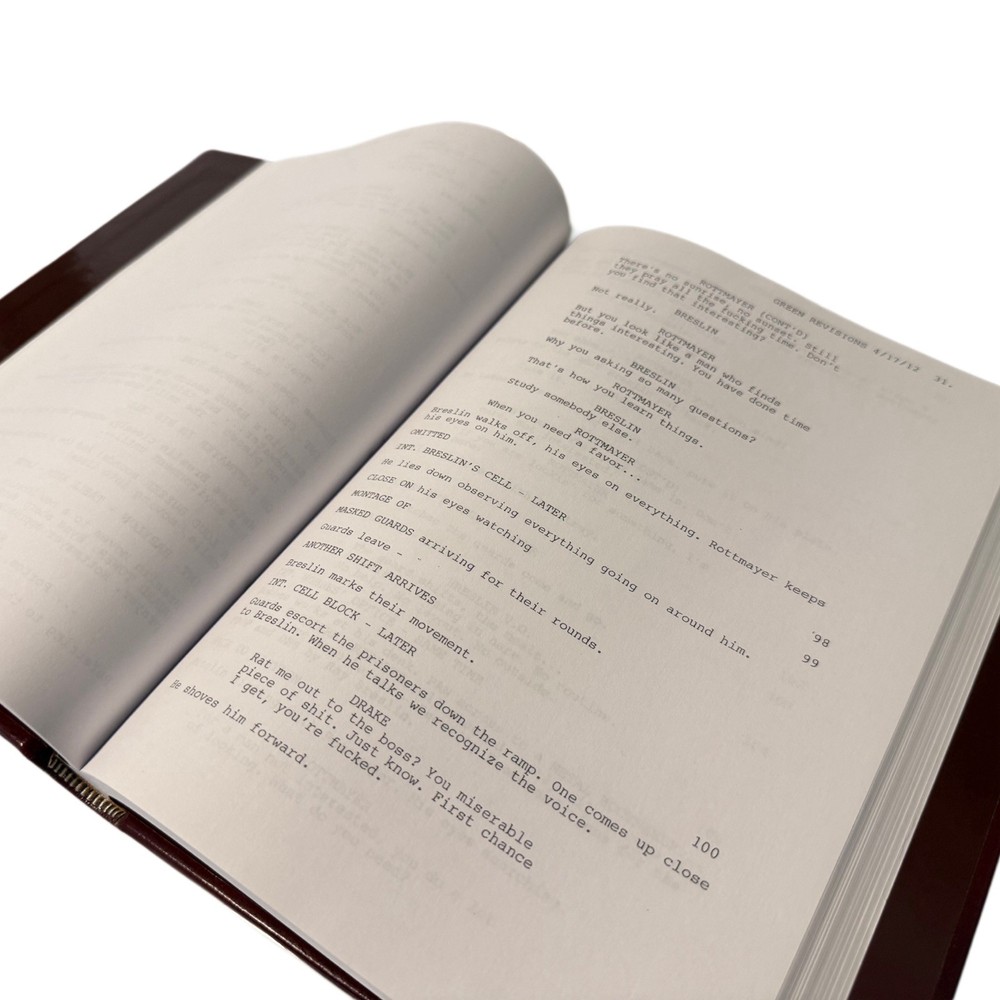 GREEN REVISIONS 4/17/12 31.
ROTTMAYER (CONT'D)
There's no sunrise, no sunset. Still
they pray all the fucking time. Don't
you find that interesting?
BRESLIN
Not really.
ROTTMAYER
But you look like a man who finds
things interesting. You have done time
before.
BRESLIN
Why you asking so many questions?
ROTTMAYER
That's how you learn things.
BRESLIN
Study somebody else.
ROTTMAYER
When you need a favor...
Breslin walks off, his eyes on everything. Rottmayer keeps
his eyes on him.
OMITTED 98
INT. BRESLIN'S CELL - LATER 99
He lies down observing everything going on around him.
CLOSE ON his eyes watching
MONTAGE OF
MASKED GUARDS arriving for their rounds.
Guards leave -
ANOTHER SHIFT ARRIVES
Breslin marks their movement.
INT. CELL BLOCK - LATER 100
Guards escort the prisoners down the ramp. One comes up close
to Breslin. When he talks we recognize the voice.
DRAKE
Rat me out to the boss? You miserable
piece of shit. Just know. First chance
I get, you're fucked.
He shoves him forward.